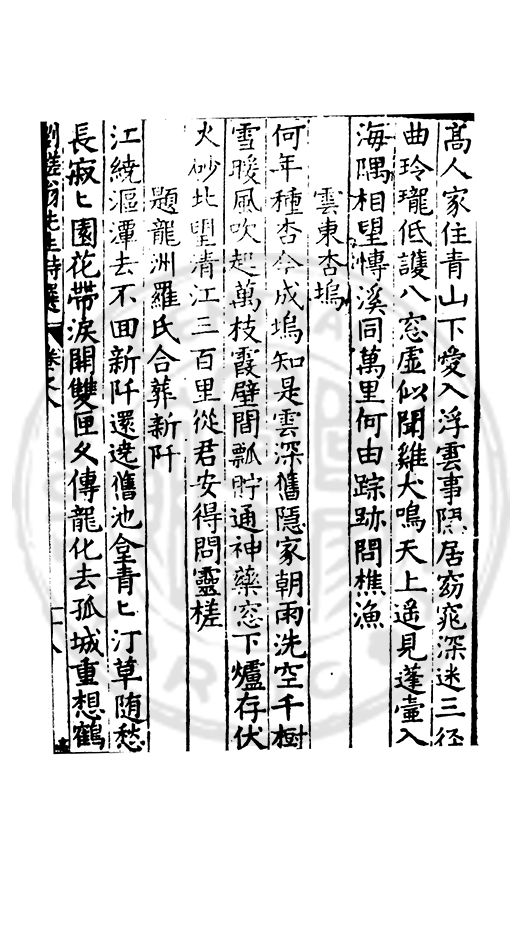 高人家住青山下愛入浮雲事閒居窈窕深迷三徑
曲玲瓏低護八窓虛似聞雞犬鳴天上遙見蓬壷入
海隅相望愽溪同萬里何由踪跡問樵漁
雲東杏塢
何年種杏今成塢知是雲深舊隱家朝雨洗空千樹
雪暖風吹起萬枝霞壁間瓢貯通神藥窓下爐存伏
火砂北望清江三百里從君安得問靈槎
題龍洲羅氏合葬新阡
江繞漚潭去不回新阡還遶舊池臺青〻汀草随愁
長寂〻園花帶淚開雙匣久傳龍化去孤城重想鶴
劉槎翁先生詩選 卷之八 十八